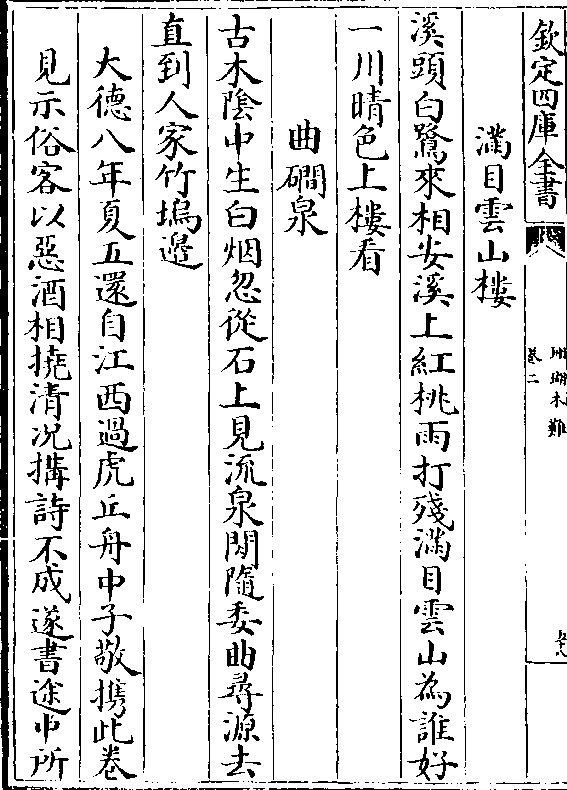 欽定四庫全書
珊瑚木難
卷二
滿目雲山樓
溪頭白鷺來相安溪上紅桃雨打殘滿目雲山為誰好
一川晴色上樓看
曲磵泉
古木陰中生白烟忽從石上見流泉閒隨委曲尋源去
直到人家竹塢邊
大德八年夏五還自江西過虎丘舟中子敬携此卷
見示俗客以惡酒相撓清况搆詩不成遂書途中所